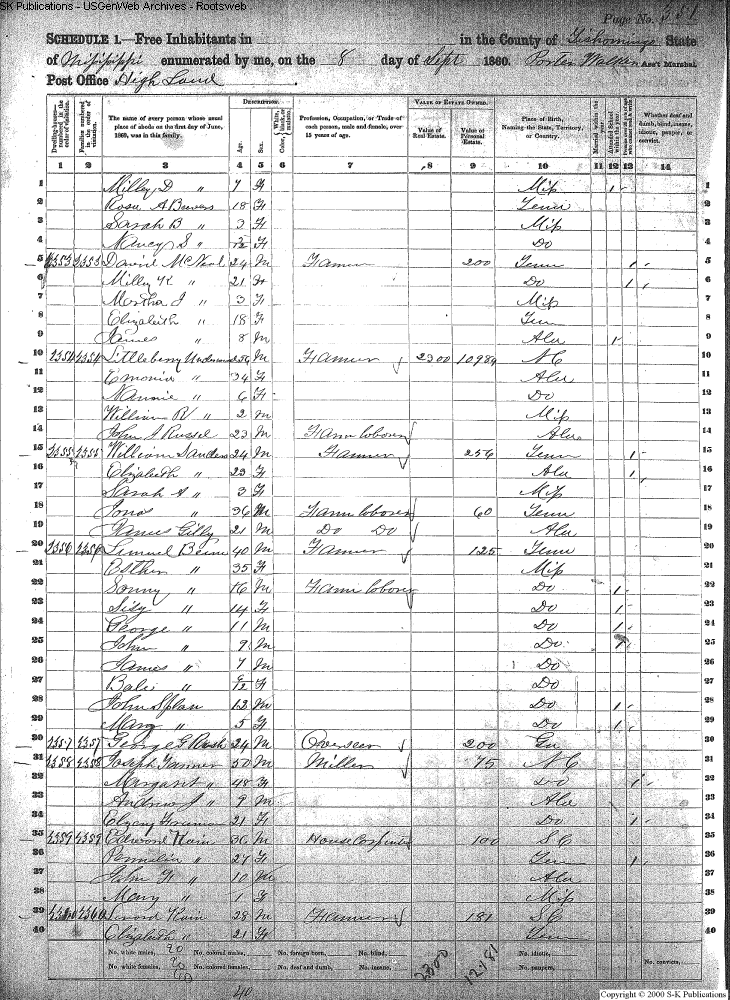 SK Publications - USGenWeb Archives - Rootsweb
Page No. 351
SCHEDULE 1.—Free Inhabitants in in the County of Tishomingo State
of Mississippi enumerated by me, on the 8 day of Sept 1860. Porter Walker Ass't Marshal.
Post Office High Land
Dwelling-houses—numbered in the order of visitation.
Families numbered in the order of visitation.
The name of every person whose usual place of abode on the first day of June, 1860, was in this family.
DESCRIPTION.
Age.
Sex.
Color, White, black, or mulatto.
Profession, Occupation, or Trade of each person, male and female, over 15 years of age.
VALUE OF ESTATE OWNED.
Value of Real Estate.
Value of Personal Estate.
Place of Birth, Naming the State, Territory, or Country.
Married within the year.
Attended School within the year.
Whether deaf and dumb, blind, insane, idiotic, pauper, or convict.
1 2 3 4 5 6 7 8 9 10 11 12 13 14
1 Milley D " 7 F Miss 1 1
2 Rosa A 18 F Tenn 2
3 Sarah B " 3 F Miss 3
4 Nancy S " /12 F Do 4
5 1353 1353 David McNeal 24 M Farmer 200 Tenn 1 5
6 Milley K " 21 F Do 1 6
7 Martha J " 3 F Miss 7
8 Elizabeth " 18 F Tenn 8
9 James " 8 M Ala 1 9
10 1354 1354 Littleberry M Farmer 2300 10984 NC 10
11 " 34 F Ala 11
12 Nannie " 6 F Do 12
13 William R " 2 M Miss 13
14 John S Russel 23 M Farm laborer Ala 14
15 1355 1355 William Sanders 24 M Farmer 256 Tenn 1 15
16 Elizabeth " 23 F Ala 1 16
17 Sarah A " 3 F Miss 17
18 Jonas " 36 M Farm laborer 60 Tenn 18
19 James Gilly 21 M Do Do Ala 19
20 1356 1356 Lemuel 40 M Farmer 125 Tenn 20
21 Esther " 35 F Miss 21
22 Sonny " 16 M Farm laborer Do 1 22
23 " 14 F Do 1 23
24 George " 11 M Do 1 24
25 John " 9 M Do 1 25
26 James " 7 M Do 26
27 " /12 F Do 27
28 John 12 M Do 1 28
29 Mary " 5 F Do 1 29
30 1357 1357 George G Rush 24 M Overseer 200 Ga 30
31 1358 1358 Joseph 50 M Miller 75 NC 31
32 Margaret " 48 F Do 1 32
33 Andrew J " 9 M Ala 33
34 21 F Do 1 34
35 1359 1359 Edward Kain 36 M House Carpenter 100 SC 35
36 " 27 F Tenn 1 36
37 John W " 10 M Ala 37
38 Mary " 1 F Miss 38
39 1360 1360 Kain 28 M Farmer 181 SC 39
40 Elizabeth " 21 F Tenn 40
No. white males, 20 No. colored males, No. foreign born, No. blind, 2300 12181 No. idiotic, No. convicts,
No. white females, 20 No. colored females, No. deaf and dumb, No. insane, No. paupers,
40
Copyright © 2000 S-K Publications